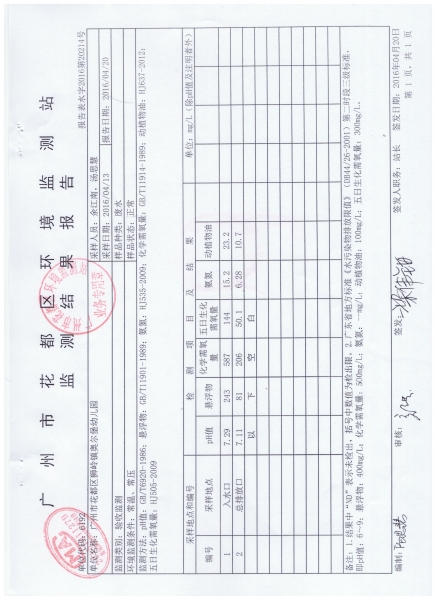 广州市花都区环境监测站
监测结果报告
单位代码：6192 报告表水字2016第20214号
单位名称：广州市花都区狮岭镇奥尔堡幼儿园 采样人员：余江南、汤思慧
监测类别：验收监测 采样日期：2016/04/13 报告日期：2016/04/20
环境监测条件：常温、常压 样品种类：废水
样品状态：正常
监测方法：pH值：GB/T6920-1986；悬浮物：GB/T11901-1989；氨氮：HJ535-2009；化学需氧量：GB/T11914-1989；动植物油：HJ637-2012；
五日生化需氧量：HJ505-2009
采样地点和编号 检 测 项 目 及 结 果 单位：mg/L（除pH值及注明者外）
编号 采样地点 pH值 悬浮物 化学需氧量 五日生化需氧量 氨氮 动植物油
1 入水口 7.29 243 587 144 15.2 23.2
2 总排放口 7.11 81 206 50.1 6.28 10.7
以 下 空 白
备注：1.结果中“ND”表示未检出，括号中数值为检出限。2.广东省地方标准《水污染物排放限值》（DB44/26-2001）第二时段三级标准，
即pH值：6～9；悬浮物：400mg/L；化学需氧量：500mg/L；氨氮：—mg/L；动植物油：100mg/L；五日生化需氧量：300mg/L。
编制： 审核： 签发： 签发人职务：站长 签发日期：2016年04月20日
第 1 页，共 1 页
业务专用章
MA